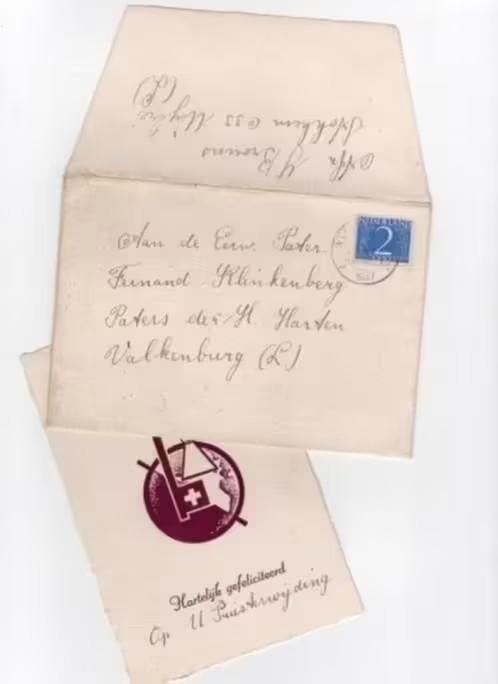 Afz. J Brouns
Stokkem 033 Wijlre
(L)
NEDERLAND
2
CENT
Aan de Eerw. Pater
Fernand Klinkenberg
Paters der H. Harten
Valkenburg (L)
Hartelijk gefeliciteerd
Op U Priesterwijding